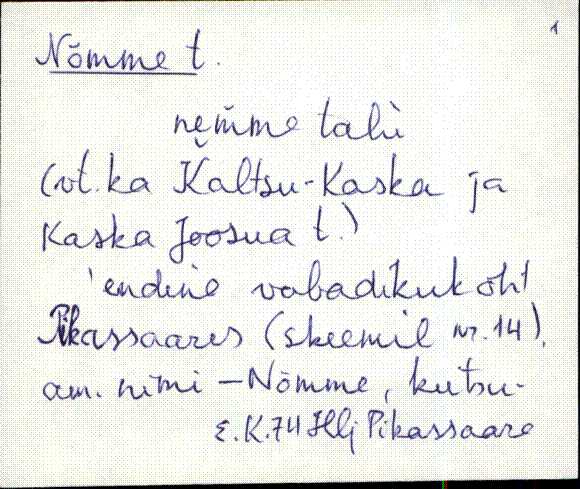 1
Nõmme t.
nemme talu
(vt. ka Kaltsu-Kaska ja
Kaska Joosua t.)
endine vabadikukoht
Pikassaares (skeemil nr. 14),
am. nimi – Nõmme, kutsu-
E.K.74 Hlj Pikassaare